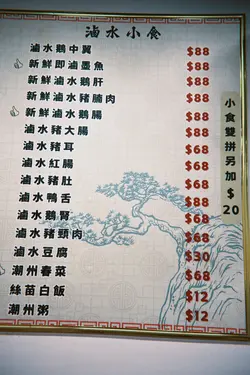 滷水小食
滷水鵝中翼 $88
新鮮即滷墨魚 $88
新鮮滷水鵝肝 $88
新鮮滷水豬腩肉 $88
新鮮滷水鵝腸 $88
滷水豬大腸 $88
滷水豬耳 $68
滷水紅腸 $68
滷水豬肚 $68
滷水鴨舌 $88
滷水鵝腎 $68
滷水豬頸肉 $68
滷水豆腐 $30
潮州春菜 $68
絲苗白飯 $12
潮州粥 $12
小食雙拼另加$20